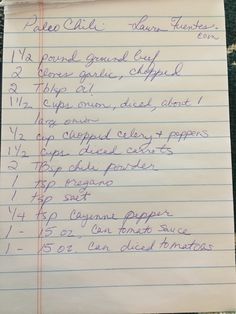 Paleo Chili - Laura Fuentes.
com
1 1/2 pound ground beef
2 cloves garlic, chopped
2 Tblsp oil
1 1/2 cups onion, diced, about 1
large onion
1/2 cup chopped celery + peppers
1 1/2 cups diced carrots
2 TBsp chili powder
1 tsp oregano
1 tsp salt
1/4 tsp cayenne pepper
1 - 15 oz. can tomato sauce
1 - 15 oz. can diced tomatoes